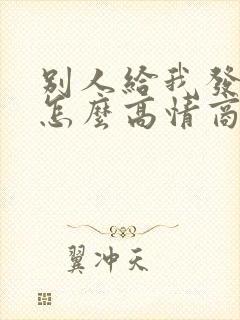 別人給我發
怎麼高情商
翼冲天